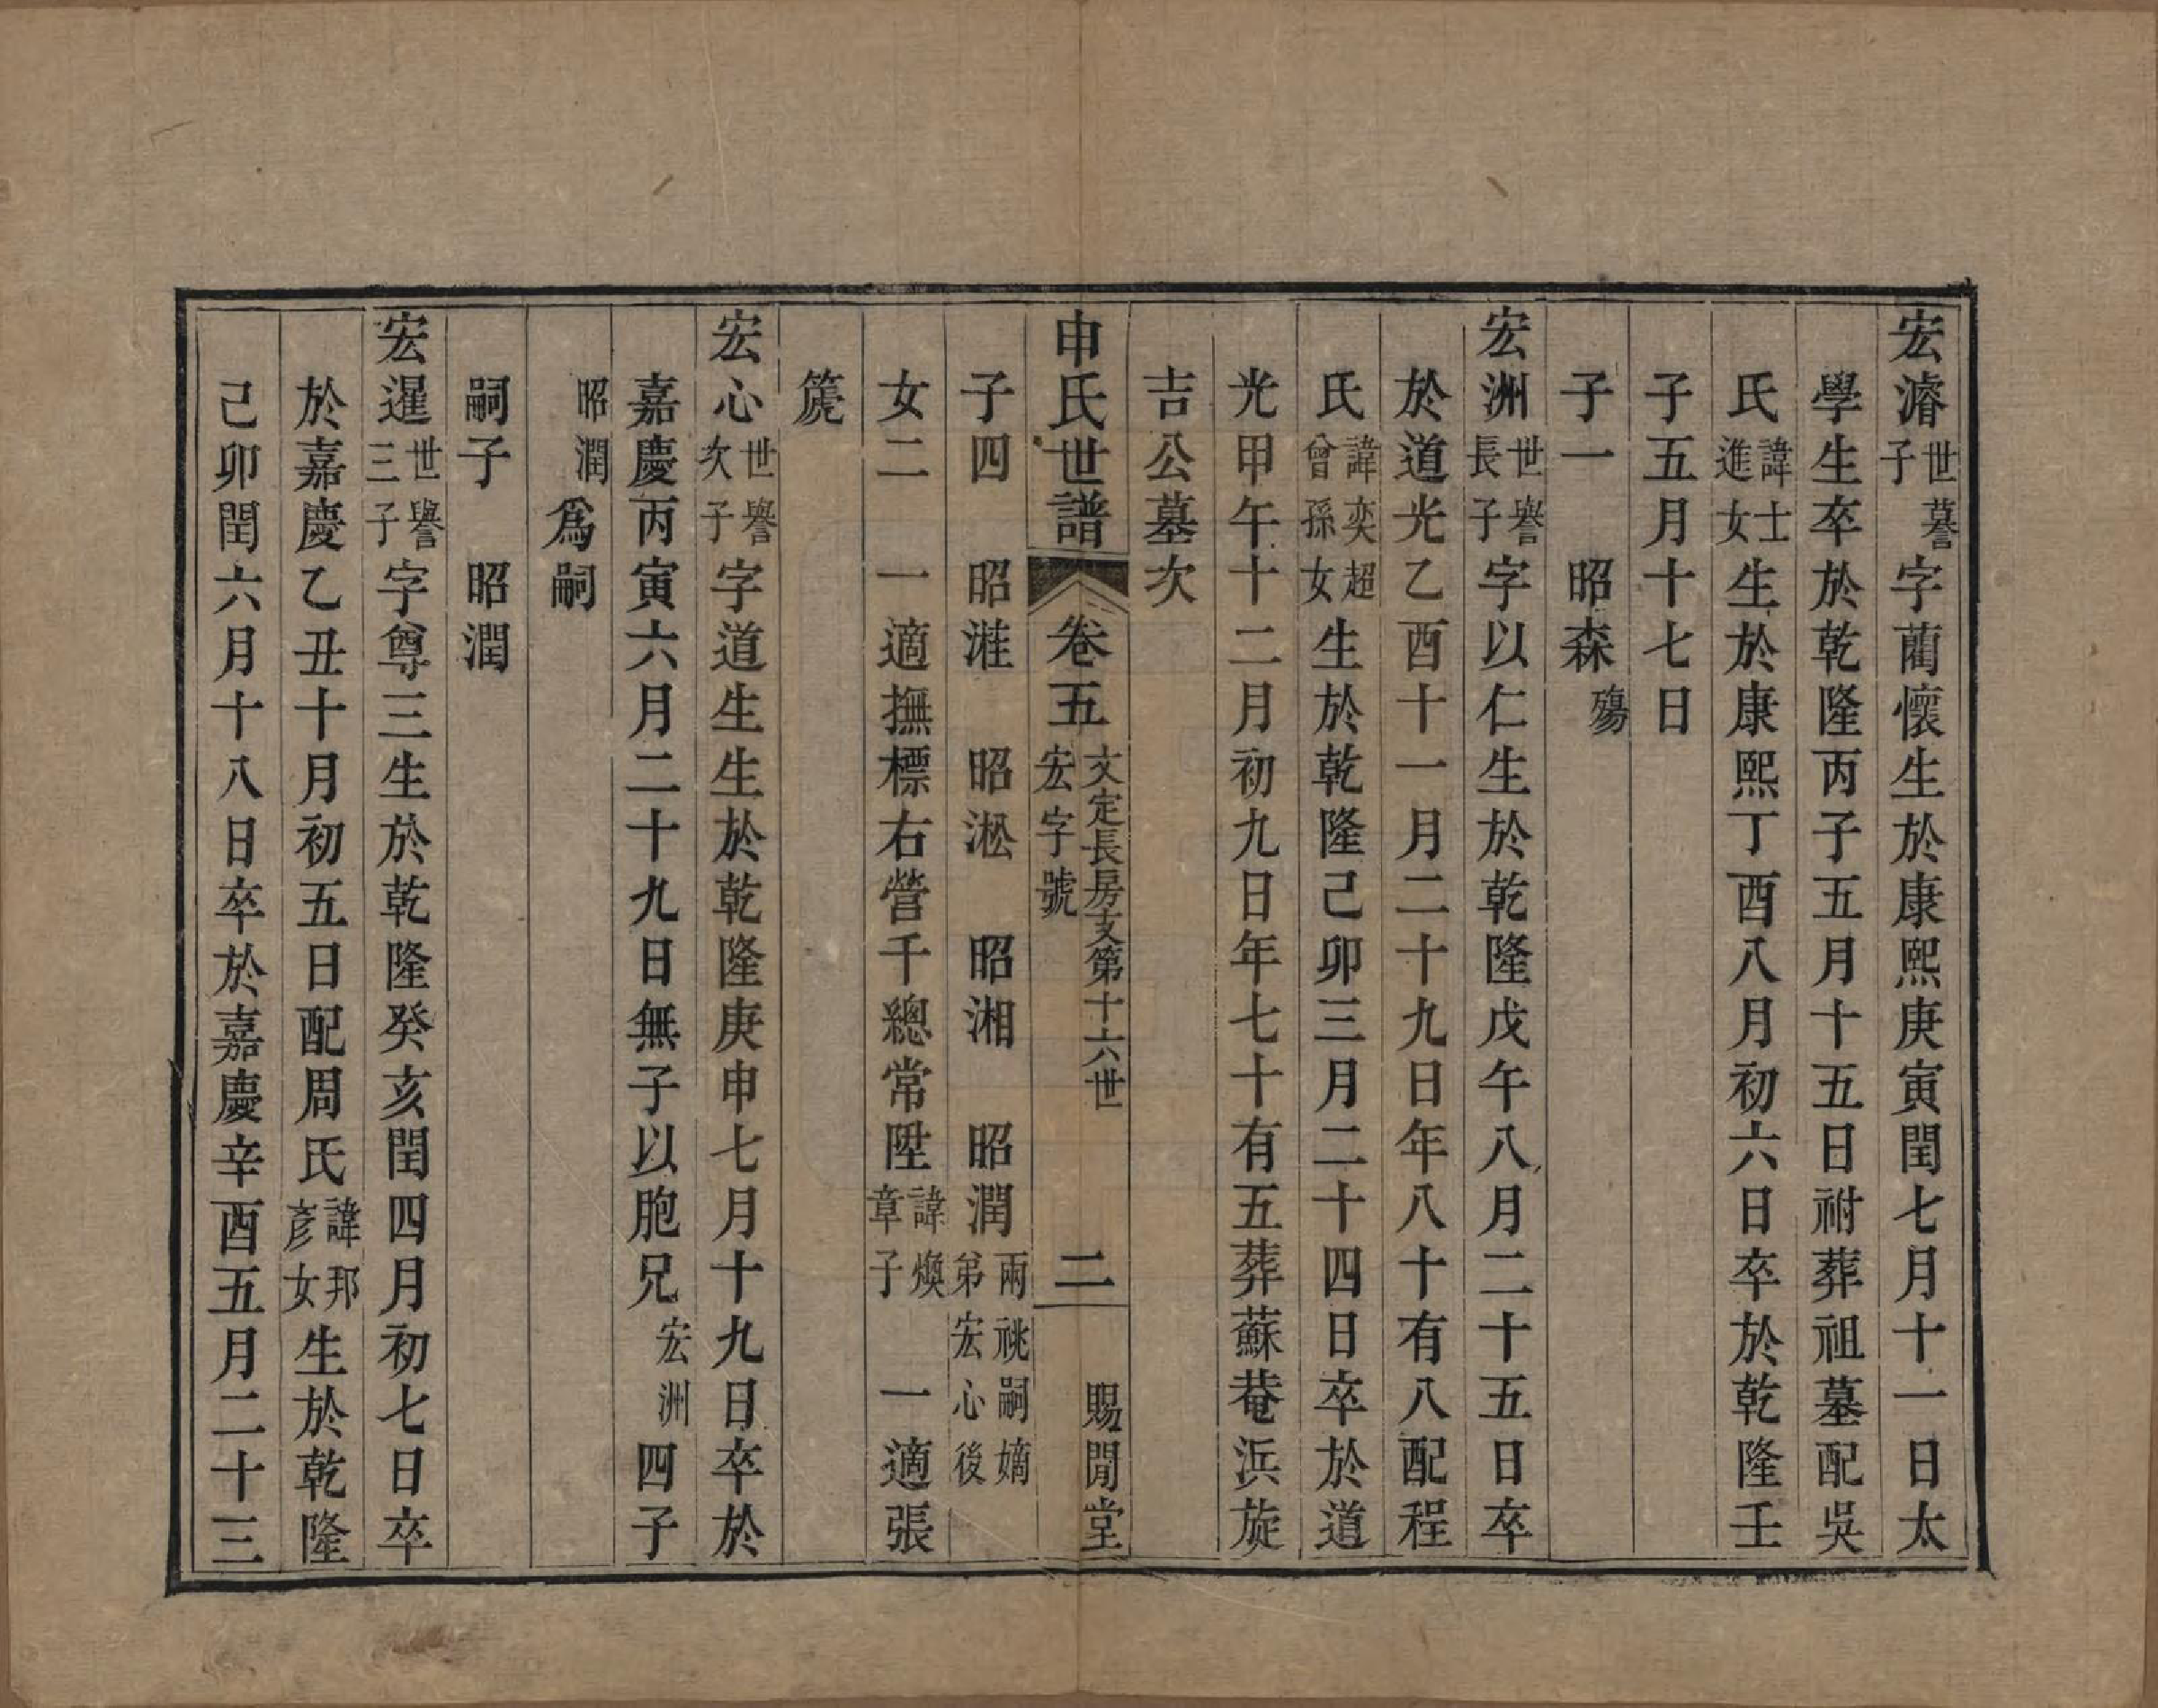 宏濬世謩子字藺懷生於康熙庚寅閏七月十一日太
學生卒於乾隆丙子五月十五日祔葬祖墓配吳
氏諱士進女生於康熙丁酉八月初六日卒於乾隆壬
子五月十七日
子一　昭森殤
宏洲世譽長子字以仁生於乾隆戊午八月二十五日卒
於道光乙酉十一月二十九日年八十有八配程
氏諱奕超曾孫女生於乾隆己卯三月二十四日卒於道
光甲午十二月初九日年七十有五葬蘇菴浜旋
吉公墓次
申氏世譜　卷五　文定長房支第十六世宏字號　二　賜閒堂
子四　昭漄　昭淞　昭湘　昭潤兩祧嗣嫡弟宏心後
女二　一適撫標右營千總常陞諱煥章子　一適張
篪
宏心世譽次子字道生生於乾隆庚申七月十九日卒於
嘉慶丙寅六月二十九日無子以胞兄宏洲四子
昭潤爲嗣
嗣子　昭潤
宏暹世譽三子字尊三生於乾隆癸亥閏四月初七日卒
於嘉慶乙丑十月初五日配周氏諱邦彥女生於乾隆
己卯閏六月十八日卒於嘉慶辛酉五月二十三